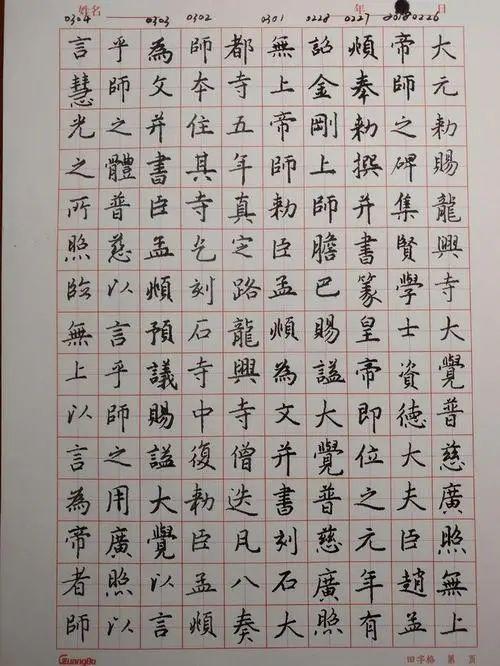 姓名 年 日
0304 0303 0302 0301 0228 0227 20180226
大元勅賜龍興寺大覺普慈廣照無上
帝師之碑集賢學士資德大夫臣趙孟
頫奉勅撰并書篆皇帝即位之元年有
詔金剛上師膽巴賜謚大覺普慈廣照
無上帝師勅臣孟頫為文并書刻石大
都寺五年真定路龍興寺僧迭凡八奏
師本住其寺乞刻石寺中復勅臣孟頫
為文并書臣孟頫預議賜謚大覺以言
乎師之體普慈以言乎師之用廣照以
言慧光之所照臨無上以言為帝者師
GuangBo 田字格 第 页